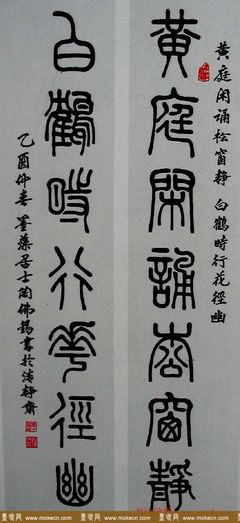 黄庭闲诵松窗静 白鹤時行花径幽
黃庭閑誦松窗靜
白鶴時行華徑幽
乙酉仲春墨藻居士陶佛錫書於清静齋
墨客网 www.mokecn.com 墨客网 www.mokecn.com 墨客网